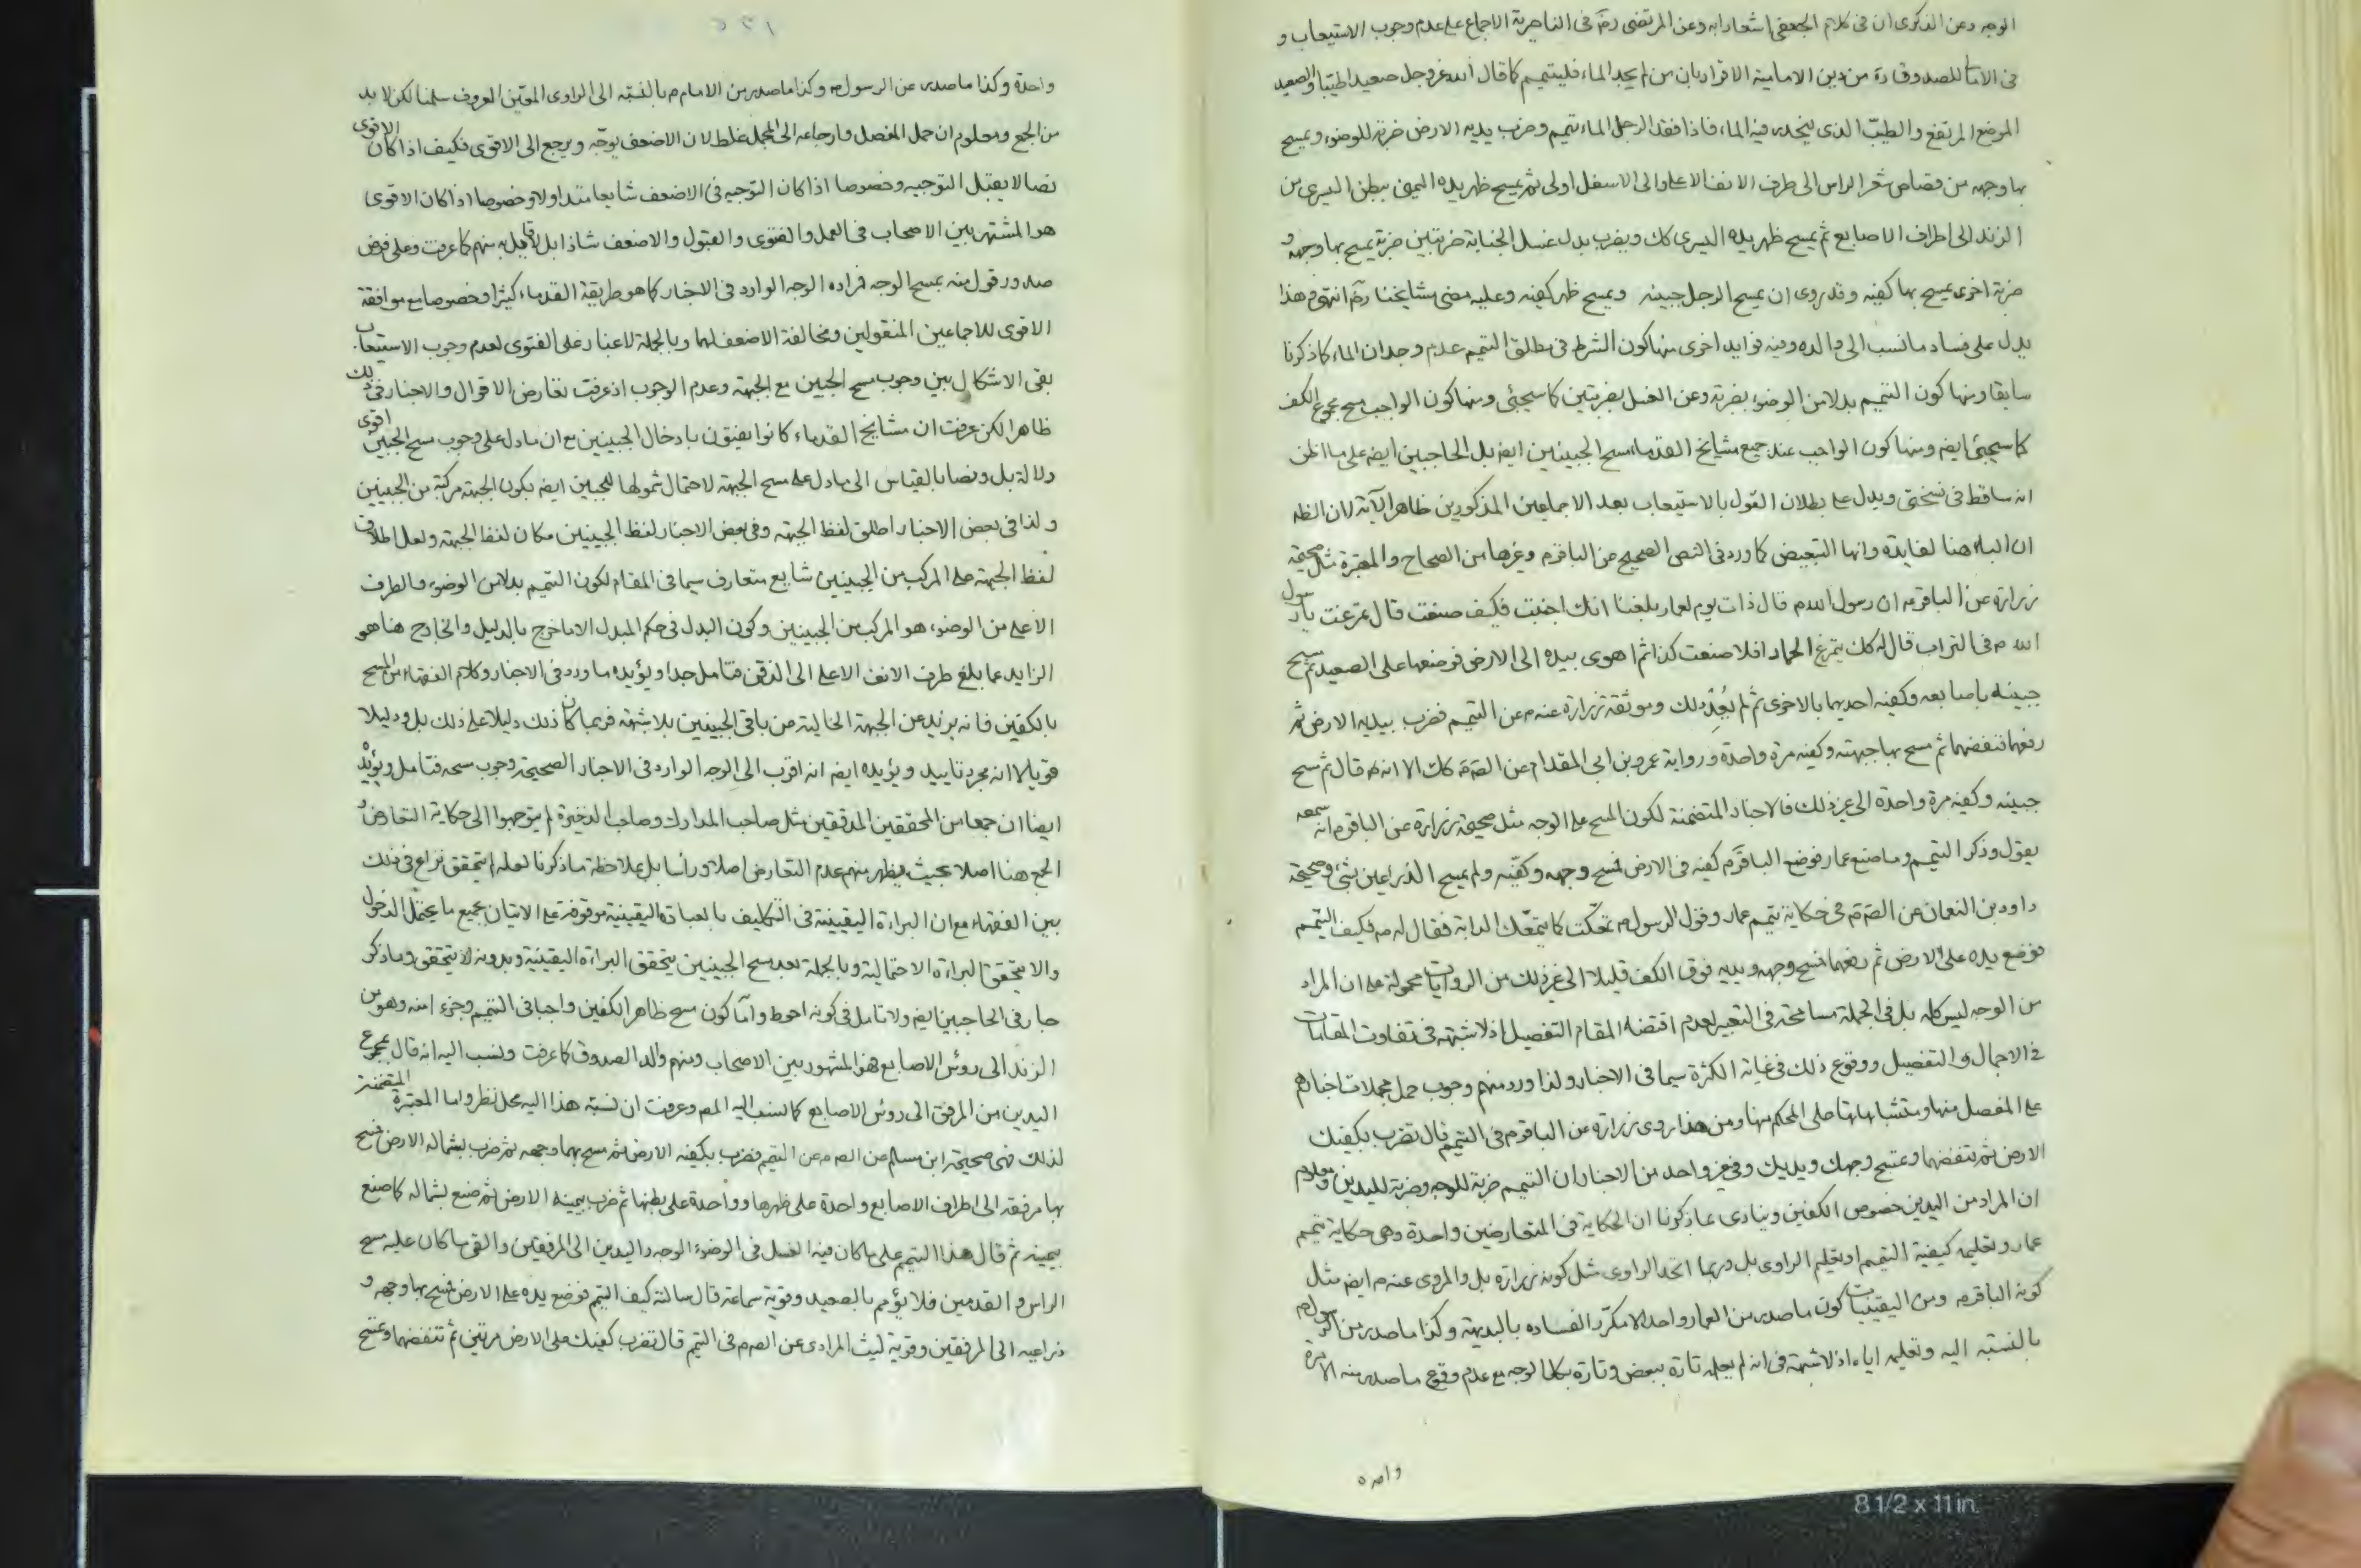 الوجه وعن الذكرى ان فى كلام الجعفى اشعارا به وعن المرتضى ره فى الناصرية الاجماع على عدم وجوب الاستيعاب و
فى الامالى للصدوق ره من دين الامامية الاقرار بان من لم يجد الماء فليتيمم كما قال الله عز وجل صعيدا طيبا والصعيد
الموضع المرتفع والطيب الذى ينحدر فيه الماء فاذا فقد الرجل الماء تيمم وضرب يديه الارض ضربة للوضوء ويمسح
بها وجهه من قصاص شعر الراس الى طرف الانف الاعلى والى الاسفل اولى ثم يمسح ظهر يده اليمنى ببطن اليسرى من
الزند الى اطراف الاصابع ثم يمسح ظهر يده اليسرى كك ويضرب بدل غسل الجنابة ضربتين ضربة يمسح بها وجهه و
ضربة اخرى يمسح بها كفيه وقد روى ان يمسح الرجل جبينه ويمسح ظهر كفيه وعليه مضى مشايخنا ره انتهى هذا
يدل على فساد ما نسب الى والده وفيه فوايد اخرى منها كون الشرط فى مطلق التيمم عدم وجدان الماء كما ذكرنا
سابقا ومنها كون التيمم بدلا من الوضوء بضربة وعن الغسل بضربتين كما سيجئ ومنها كون الواجب مسح مجموع الكف
كما سيجئ ايضه ومنها كون الواجب عند جميع مشايخ القدماء مسح الجبينين ايضه بل الحاجبين ايضه على ما اظن
انه ساقط فى نسختى ويدل على بطلان القول بالاستيعاب بعد الاجماعين المذكورين ظاهر الآية لان الظه
ان الباء هنا لفايدة وانها التبعيض كما ورد فى النص الصحيح عن الباقر م وغيرها من الصحاح والمعتبرة مثل صحيحة
زرارة عن الباقر م ان رسول الله م قال ذات يوم لعمار بلغنا انك اجنبت فكيف صنعت قال تمرغت يا رسول
الله م فى التراب قال له كك يتمرغ الحمار افلا صنعت كذا ثم اهوى بيده الى الارض فوضعها على الصعيد ثم مسح
جبينه باصابعه وكفيه احديهما بالاخرى ثم لم يعد ذلك وموثقة زرارة عنه م عن التيمم فضرب بيديه الارض ثم
رفعهما فنفضهما ثم مسح بها جبهته وكفيه مرة واحدة ورواية عمرو بن ابى المقدام عن الصم كك الا انه م قال ثم مسح
جبينه وكفيه مرة واحدة الى غير ذلك فالاخبار المتضمنة لكون المسح على الوجه مثل صحيحة زرارة عن الباقر م انه سمعه
يقول وذكر التيمم وما صنع عمار فوضع الباقر م كفيه فى الارض فمسح وجهه وكفيه ولم يمسح الذراعين بشئ وصحيحة
داود بن النعمان عن الصم فى حكاية تيمم عمار وقول الرسول م تمعكت كما يتمعك الدابة فقال له م فكيف التيمم
فوضع يده على الارض ثم رفعهما فمسح وجهه ويديه فوق الكف قليلا الى غير ذلك من الروايات محمولة على ان المراد
من الوجه ليس كله بل فى الجملة مسامحة فى التعبير لعدم اقتضاء المقام التفصيل اذ لا شبهة فى تفاوت المقامات
فى الاجمال والتفصيل ووقوع ذلك فى غاية الكثرة سيما فى الاخبار ولذا ورد منهم وجوب حمل مجملات اخبارهم
على المفصل منها ومتشابهاتها على المحكم منها ومن هذا روى زرارة عن الباقر م فى التيمم قال تضرب بكفيك
الارض ثم تنفضهما وتمسح وجهك ويديك وفى غير واحد من الاخبار ان التيمم ضربة للوجه وضربة لليدين ومعلوم
ان المراد من اليدين خصوص الكفين وينادى بما ذكرنا ان الحكاية فى المتعارضين واحدة وهى حكاية تيمم
عمار وتعليمه كيفية التيمم او تعليم الراوى بل وربما اتحد الراوى مثل كونه زرارة بل والمروى عنه م ايضه مثل
كونه الباقر م ومن اليقينيات كون ما صدر من العمار واحدا لا مكررا لفساده بالبديهة وكذا ما صدر من الرسول م
بالنسبة اليه وتعليمه اياه اذ لا شبهة فى انه لم يعلمه تارة ببعض وتارة بكل الوجه مع عدم وقوع ما صدر منه الا مرة
واحدة وكذا ما صدر عن الرسول م وكذا ما صدر من الامام م بالنسبة الى الراوى المعين المعروف سلمنا لكن لا بد
من الجمع ومعلوم ان حمل المفصل وارجاعه الى المجمل غلط لان الاضعف يوجه ويرجع الى الاقوى فكيف اذا كان الاقوى
نصا لا يقبل التوجيه وخصوصا اذا كان التوجيه فى الاضعف شايعا متداولا وخصوصا اذا كان الاقوى
هو المشتهر بين الاصحاب فى العمل والفتوى والقبول والاضعف شاذا بل لا قايل به منهم كما عرفت وعلى فرض
صدور قول منه بمسح الوجه فمراده الوجه الوارد فى الاخبار كما هو طريقة القدماء كثيرا وخصوصا مع موافقة
الاقوى للاجماعين المنقولين ومخالفة الاضعف لهما وبالجملة لا غبار على الفتوى لعدم وجوب الاستيعاب
بقى الاشكال بين وجوب مسح الجبين مع الجبهة وعدم الوجوب اذ عرفت تعارض الاقوال والاخبار فى ذلك
ظاهرا لكن عرفت ان مشايخ القدماء كانوا يفتون بادخال الجبينين مع ان ما دل على وجوب مسح الجبين اقوى
دلالة بل ونصا بالقياس الى ما دل على مسح الجبهة لاحتمال شمولها للجبين ايضه بكون الجبهة مركبة من الجبينين
ولذا فى بعض الاخبار اطلق لفظ الجبهة وفى بعض الاخبار لفظ الجبينين مكان لفظ الجبهة ولعل اطلاق
لفظ الجبهة على المركب من الجبينين شايع متعارف سيما فى المقام لكون التيمم بدلا من الوضوء والطرف
الاعلى من الوضوء هو المركب من الجبينين وكون البدل فى حكم المبدل الا ما خرج بالدليل والخارج هنا هو
الزايد عما بلغ طرف الانف الاعلى الى الذقن فتامل جدا ويؤيده ما ورد فى الاخبار وكلام الفقهاء من المسح
بالكفين فانه يزيد عن الجبهة الخالية من باقى الجبينين بلا شبهة فربما كان ذلك دليلا على ذلك بل ودليلا
قويا لا انه مجرد تاييد ويؤيده ايضه انه اقرب الى الوجه الوارد فى الاخبار الصحيحة وجوب مسحه فتامل ويؤيده
ايضا ان جمعا من المحققين المدققين مثل صاحب المدارك وصاحب الذخيرة لم يتوجهوا الى حكاية التعارض و
الجمع هنا اصلا بحيث يظهر منهم عدم التعارض اصلا وراسا بل بملاحظة ما ذكرنا لعله لم يتحقق نزاع فى ذلك
بين الفقهاء مع ان البراءة اليقينية فى التكاليف بالعبادة اليقينية موقوفة على الاتيان بجميع ما يحتمل الدخول
والا يتحقق البراءة الاحتمالية وبالجملة بعد مسح الجبينين يتحقق البراءة اليقينية وبدونه لا يتحقق وما ذكر
جار فى الحاجبين ايضه ولا تامل فى كونه احوط واما كون مسح ظاهر الكفين واجبا فى التيمم وجزء منه وهو من
الزند الى رؤس الاصابع هو المشهور بين الاصحاب ومنهم والد الصدوق كما عرفت ونسب اليه انه قال بمجموع
اليدين من المرفق الى رؤس الاصابع كما نسب اليه المص وعرفت ان نسبة هذا اليه محل نظر واما المعتبرة المتضمنة
لذلك فهى صحيحة ابن مسلم عن الصم عن التيمم فضرب بكفيه الارض ثم مسح بهما وجهه ثم ضرب بشماله الارض فمسح
بها مرفقه الى اطراف الاصابع واحدة على ظهرها وواحدة على بطنها ثم ضرب بيمينه الارض ثم صنع بشماله كما صنع
بيمينه ثم قال هذا التيمم على ما كان فيه الغسل فى الوضوء الوجه واليدين الى المرفقين والقى ما كان عليه مسح
الراس والقدمين فلا يؤمم بالصعيد وقوية سماعة قال سالته كيف التيمم فوضع يده على الارض فمسح بها وجهه و
ذراعيه الى المرفقين وقوية ليث المرادى عن الصم م فى التيمم قال تضرب كفيك على الارض مرتين ثم تنفضهما وتمسح
8 1/2 x 11 in.